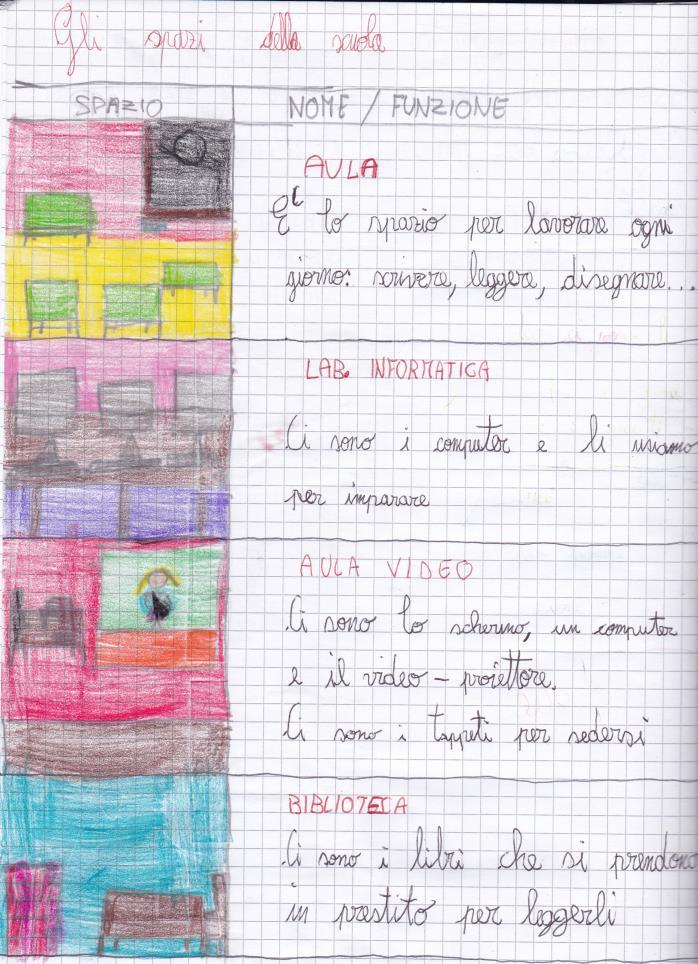 Gli spazi della scuola
SPAZIO NOME / FUNZIONE
AULA
E' lo spazio per lavorare ogni
giorno: scrivere, leggere, disegnare...
LAB. INFORMATICA
Ci sono i computer e li usiamo
per imparare
AULA VIDEO
Ci sono lo schermo, un computer
e il video - proiettore.
Ci sono i tappeti per sedersi
BIBLIOTECA
Ci sono i libri che si prendono
in prestito per leggerli